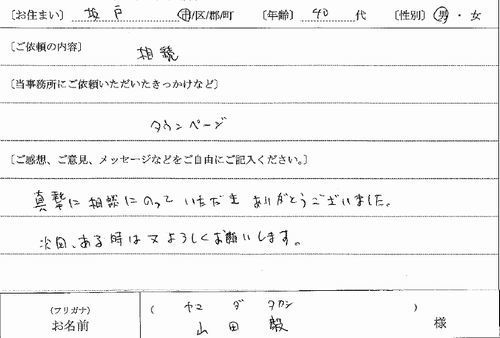 〔お住まい〕 坂戸 市/区/郡/町 〔年齢〕 40 代 〔性別〕 男・女
〔ご依頼の内容〕
相続
〔当事務所にご依頼いただいたきっかけなど〕
タウンページ
〔ご感想、ご意見、メッセージなどをご自由にご記入ください。〕
真摯に相談にのっていただき ありがとうございました。
次回、ある時は又よろしくお願いします。
(フリガナ) ( ヤマ ダ タカシ )
お名前 山田 毅 様